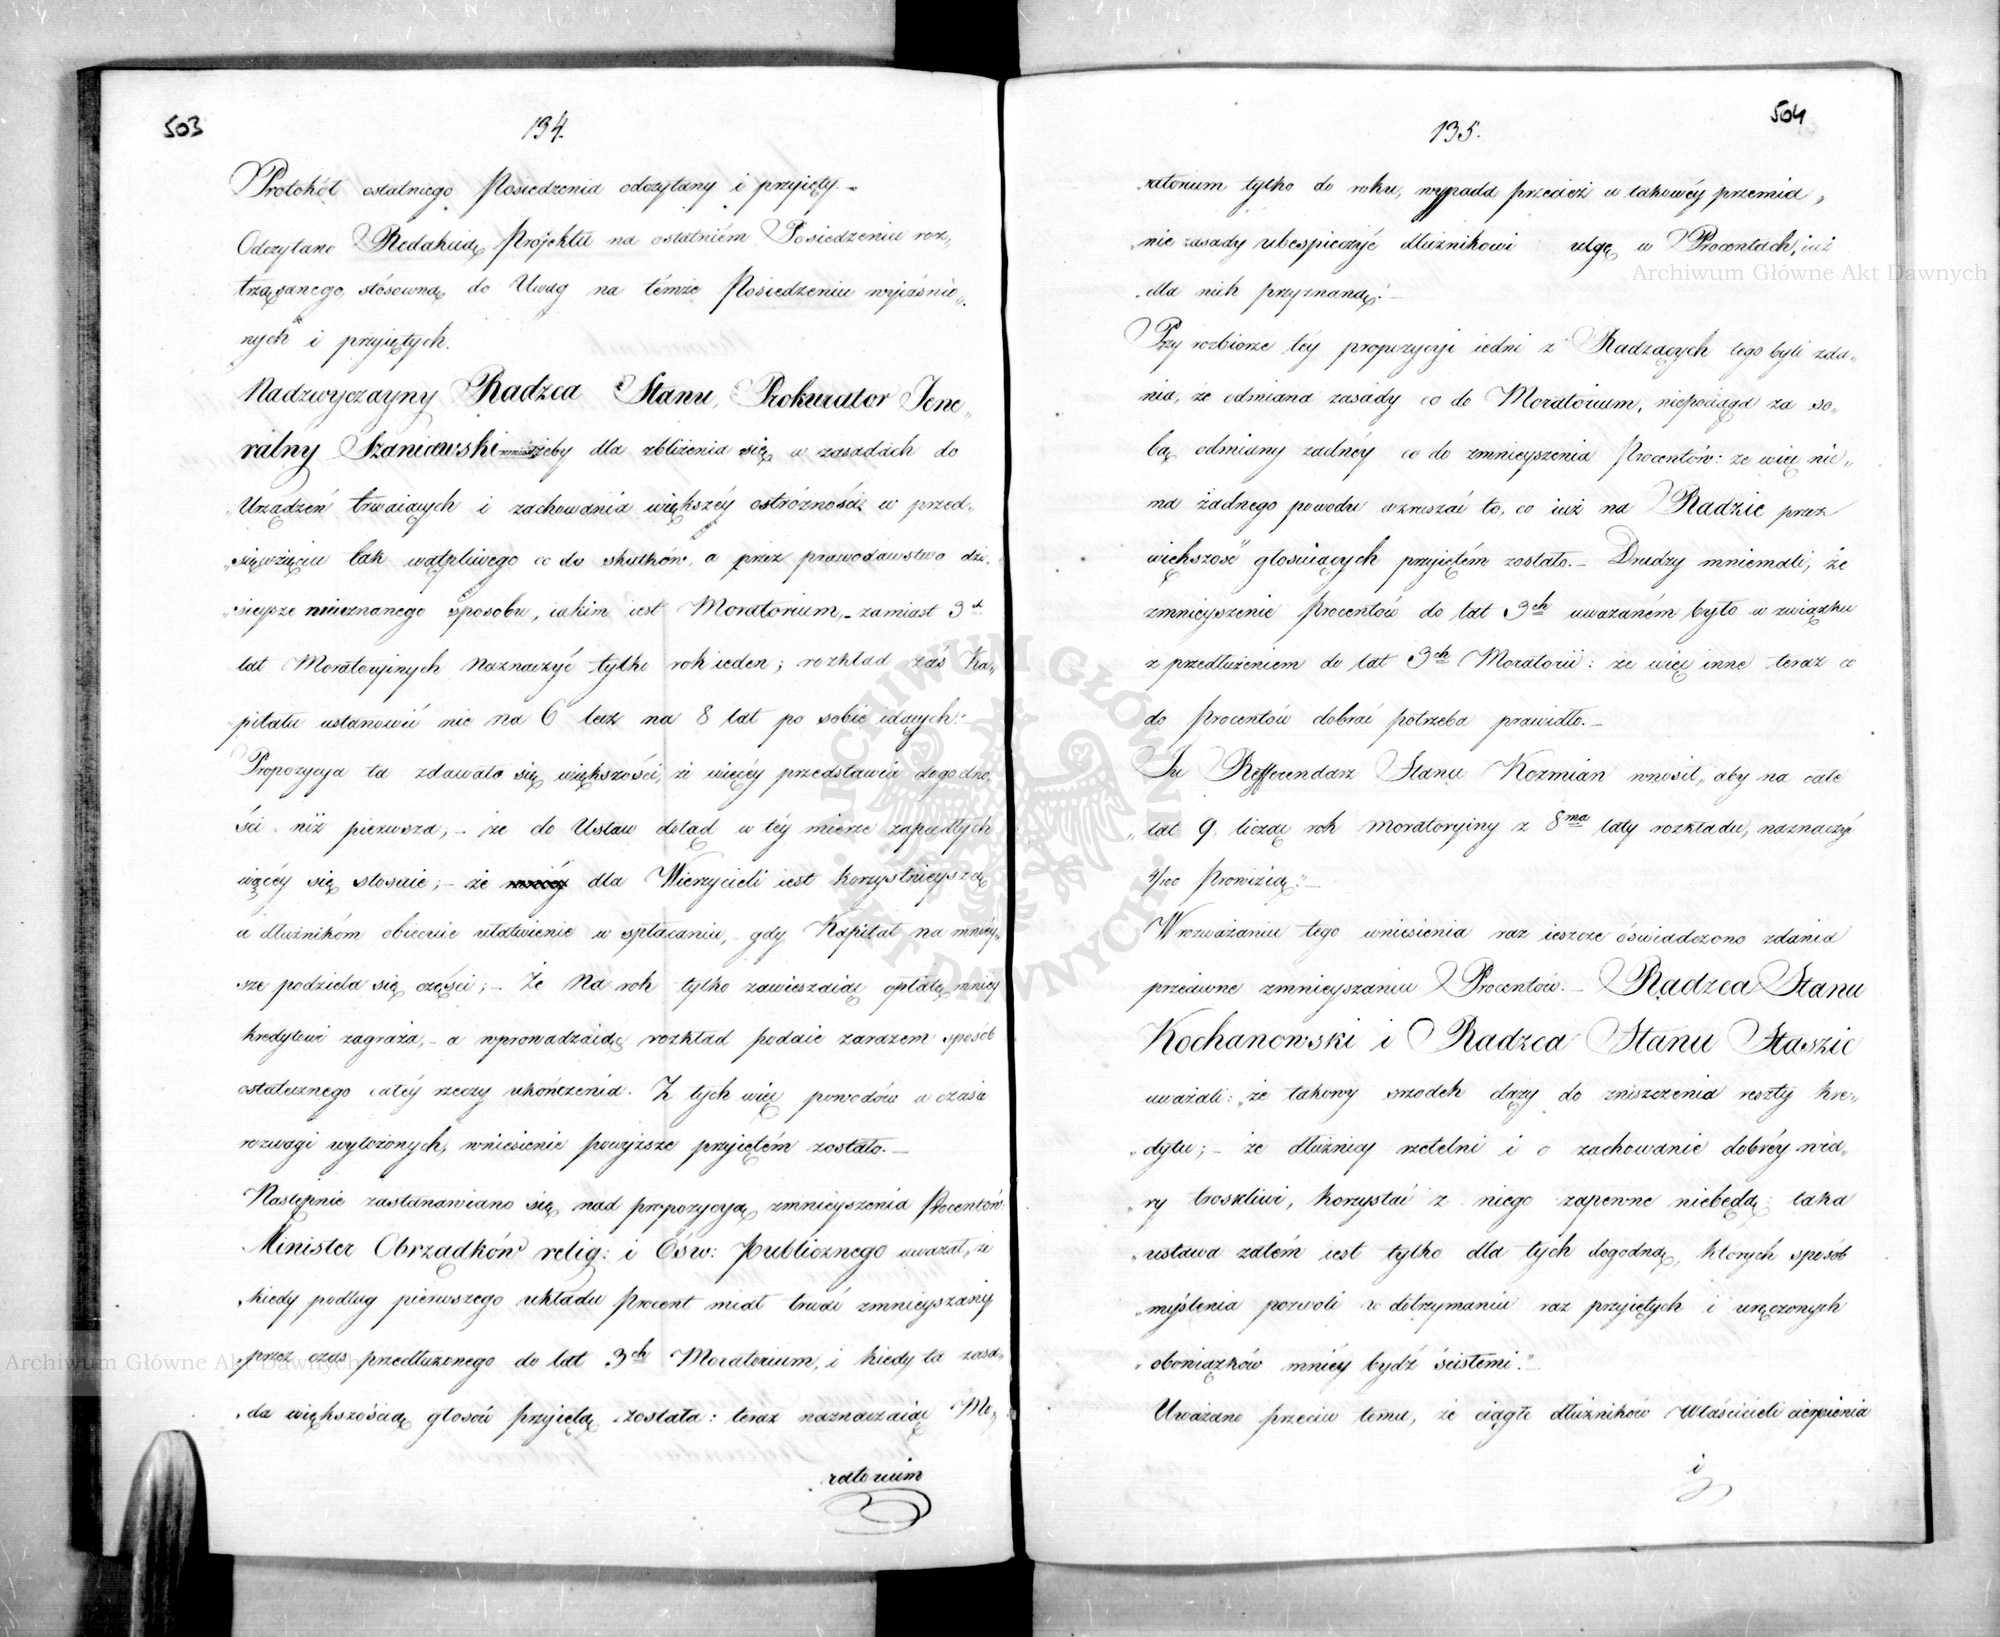 503
134.
Protokół ostatniego Posiedzenia odczytany i przyięty.-
Odczytano Redakcią Projektu na ostatniém Posiedzeniu roz„
trząsanego, stósowną do Uwag na témże Posiedzeniu wyiaśnio„
nych i przyiętych.
Nadzwyczayny Radzca Stanu, Prokurator Jene„
ralny Szaniawski wniósł, żeby dla zbliżenia się w zasadach do
„Urządzeń trwaiących i zachowania większéy ostróżności w przed„
„sięwzięciu tak wątpliwego co do skutków, a przez prawodawstwo dzi„
„sieysze nieuznanego sposobu, iakim iest Moratorium,- zamiast 3ch
lat Moratoryinych naznaczyć tylko rok ieden; rozkład zaś Ka„
pitału ustanowić nie na 6 lecz na 8 lat po sobie idących."
Propozycya ta zdawała się większości, że więcéy przedstawia dogodno„
ści niż pierwsza,- że do Ustaw dotąd w téy mierze zapadłych
więcéy się stosuie;- że dla Wierzycieli iest korzystnieyszą
a dłużnikóm obiecuie ułatwienie w spłacaniu,- gdy Kapitał na mniéy„
sze podziela się części;- Że na rok tylko zawieszaiąc opłatę mniéy
kredytowi zagraża,- a wprowadzaiąc rozkład podaie zarazem sposób
ostatecznego całéy rzeczy ukończenia. Z tych więc powodów w czasie
rozwagi wyłożonych, wniesienie powyższe przyiętém zostało.-
Następnie zastanawiano się nad propozycyą zmnieyszenia Procentów.
Minister Obrządków relig: i Ośw: Publicznego uważał, „że
„kiedy podług pierwszego układu Procent miał bydź zmnieyszany
„przez czas przedłużonego do lat 3ch Moratorium, i kiedy ta zasa„
„da większością głosów przyiętą została: teraz naznaczaiąc Mo„
ratorium
504
135.
„ratorium tylko do roku, wypada przecież w takowéy przemia„
„nie zasady ubespieczyć dłużnikowi ulgę w Procentach, iuż
„dla nich przyznaną."-
Przy rozbiorze téy propozycyi iedni z Radzących tego byli zda„
nia, że odmiana zasady co do Moratorium, niepociąga za so„
bą odmiany żadnéy co do zmnieyszenia Procentów: że więc nie„
ma żadnego powodu wzruszać to, co iuż na Radzie przez
większość głosuiących przyiętém zostało.- Drudzy mniemali, że
zmnieyszenie Procentów do lat 3ch uważaném było w związku
z przedłużeniem do lat 3ch Moratorii: że więc inne teraz co
do Procentów dobrać potrzeba prawidło.-
Tu Refferendarz Stanu Kozmian wnosił, „aby na całe
„lat 9. licząc rok moratoryiny z 8ma laty rozkładu, naznaczyć
4/100 Prowizią."-
W rozważaniu tego wniesienia raz ieszcze oświadczono zdania
przeciwne zmnieyszaniu Procentów.- Radzca Stanu
Kochanowski i Radzca Stanu Staszic
uważali: „że takowy srzodek dąży do zniszczenia reszty kre„
„dytu;- że dłużnicy rzetelni i o zachowanie dobréy wia„
„ry troskliwi, korzystać z niego zapewne niebędą; taka
„ustawa zatém iest tylko dla tych dogodną, których sposób
„myślenia pozwoli w dotrzymaniu raz przyiętych i uręczonych
„obowiązków mniéy bydź ścisłemi."-
Uważano przeciw temu, że ciągłe dłużników Właścicieli cierpienia
i
Archiwum Główne Akt Dawnych
Archiwum Główne Akt Dawnych
ARCHIWUM GŁÓWNE AKT DAWNYCH